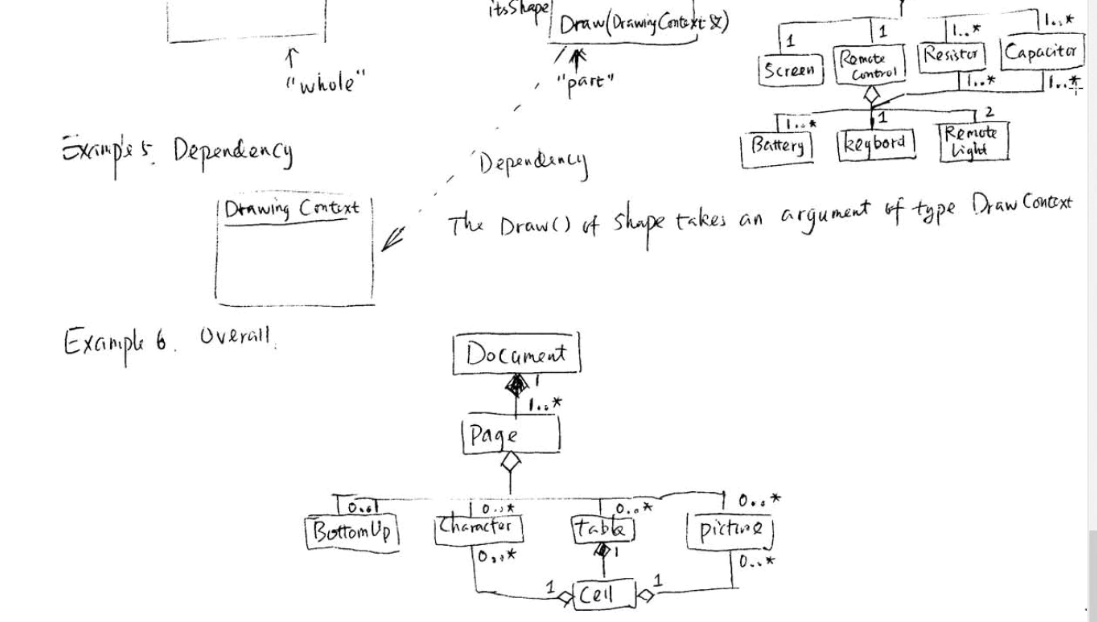 itsShape
Draw(DrawingContext &)
"whole"
"part"
1
1
1..*
1..*
Screen
Remote
Control
Resistor
Capacitor
1..*
1..*
1..*
1
2
Battery
keybord
Remote
Light
Example 5. Dependency
Dependency
Drawing Context
The Draw() of shape takes an argument of type Draw Context
Example 6. Overall.
Document
1
1..*
Page
0..1
0..*
0..*
0..*
BottomUp
Character
table
picture
0..*
1
0..*
1
Cell
1